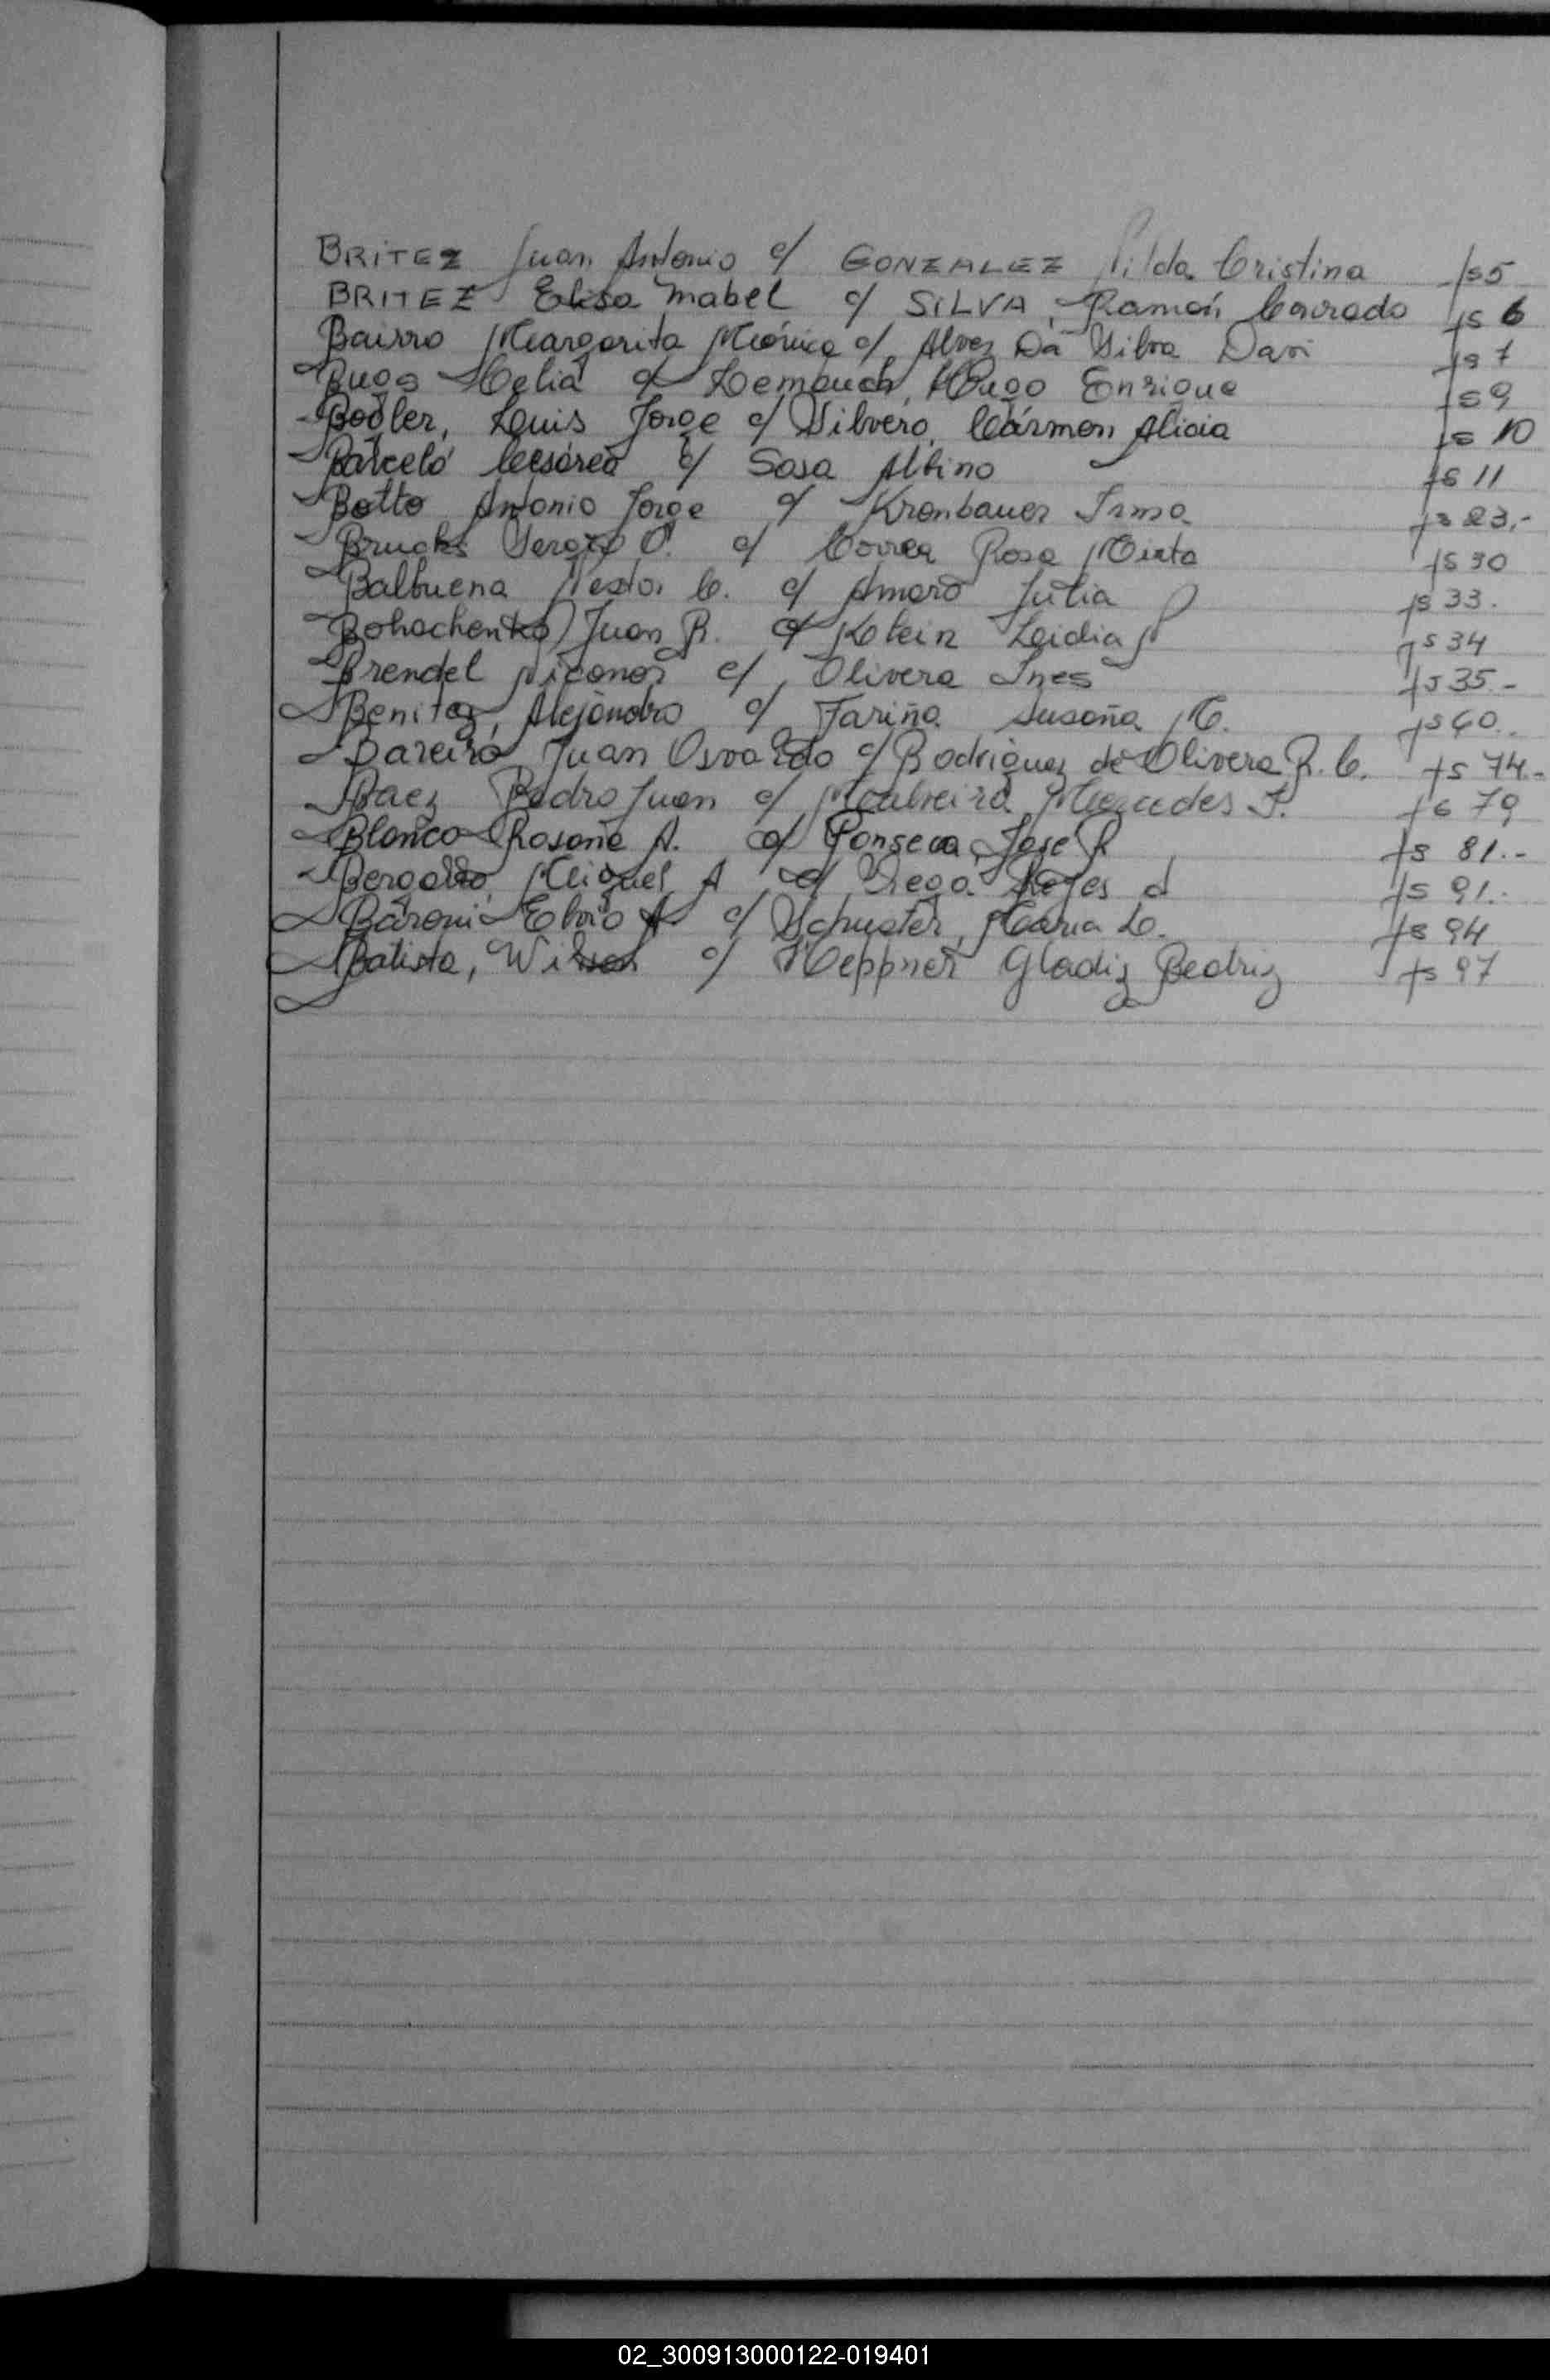 BRITEZ Juan Antonio c/ GONZALEZ Nilda Cristina fs 5
BRITEZ Elisa Mabel c/ SILVA, Ramón Conrado fs 6
Bairro Margarita Mónica c/ Alvez Da Silva Davi fs 7
Bugs Celia c/ Hugo Enrique fs 9
Luis Jorge c/ Silvero, Cármen Alicia fs 10
Barceló Cesárea c/ Sosa Albino fs 11
Botto Antonio Jorge c/ Kronbauer Irma fs 23.-
Bruchs c/ Correa Rosa Mirta fs 30
Balbuena Nestor C. c/ Amaro Julia fs 33.
Bohachenko Juan R. c/ Klein Leidia fs 34
Brendel Nicanor c/ Olivera Ines fs 35.-
Benitez, Alejandro c/ Fariña Susana M. fs 60..
Bareiro Juan Osvaldo c/ Rodriguez de Olivera R. C. fs 74.-
Baez Pedro Juan c/ Mercedes fs 79
Blanco Rosana A. c/ Fonseca, José R fs 81.-
Miguel A c/ fs 91.-
Baroni Elvio A c/ Schuster, Maria L. fs 94
Batista, Wilson c/ Heppner Gladiz Beatriz fs 97
02_300913000122-019401